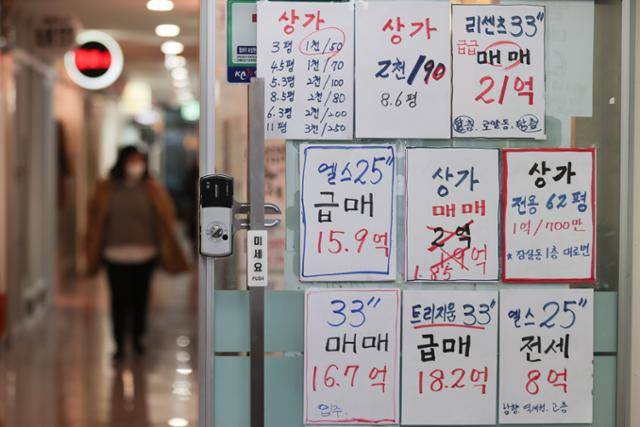 상가
3평 1천/50
4.5평 1천/70
5.3평 2천/100
8.5평 2천/80
6.3평 2천/200
11평 3천/250
상가
2천/90
8.6평
리센츠 33"
급급
매매
21억
로얄동,
엘스 25"
급매
15.9억
상가
매매
2억
1.9억
1.85
상가
전용 62평
1억/700만
* 잠실동 1층 대로변
미세요
PUSH
33"
매매
16.7억
입주
트리지움 33"
급매
18.2억
엘스 25"
전세
8억
남향, 역세권, 고층